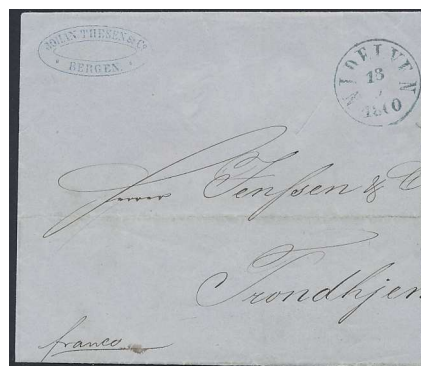 JOHAN THESEN & Co
BERGEN.
NIDELVEN
13
1860
Herrer Jenssen & C
Trondhjem
franco